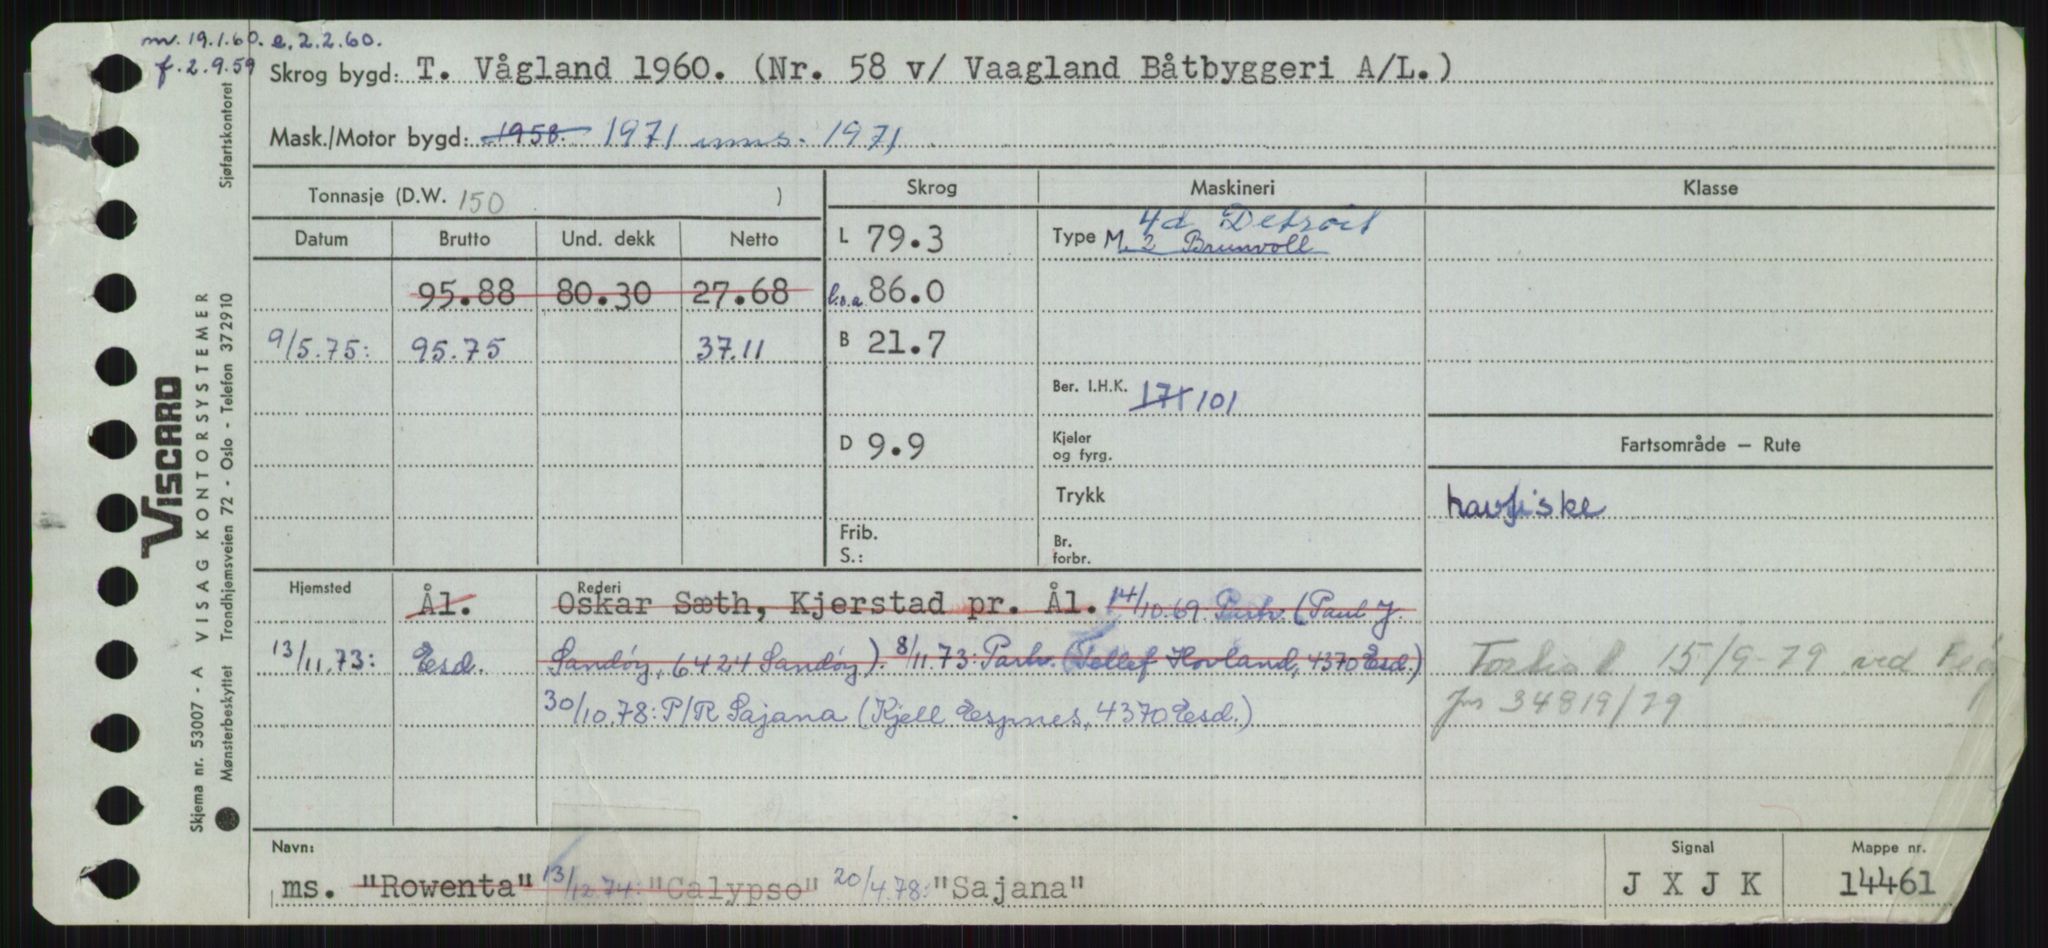 mv. 19.1.60. e. 2.2.60.
f. 2.9.59
Skrog bygd: T. Vågland 1960. (Nr. 58 v/ Vaagland Båtbyggeri A/L.)
Mask./Motor bygd: 1958. 1971 inns. 1971
Tonnasje (D.W. 150 )
Skrog Maskineri Klasse
Datum Brutto Und. dekk Netto
L 79.3
Type 4d Detroit
M. 2 Brunvoll
95.88 80.30 27.68
l.o.a. 86.0
9/5.75: 95.75 37.11
B 21.7
Ber. I.H.K. 171 101
D 9.9
Kjeler
og fyrg.
Fartsområde — Rute
Trykk
havfiske
Frib.
S.:
Br.
forbr.
Hjemsted Rederi
Ål. Oskar Sæth, Kjerstad pr. Ål. 14/10.69. Partr. (Paul J.
13/11.73: Eesd. Sandöy, 6424 Sandöy). 8/11.73: Partr. (Tellef Hovland, 4370 Eesd.)
30/10.78: P/R Sajana (Kjell Espnes, 4370 Eesd.)
15/9-79 ved
jnr 34819/79
Navn: Signal Mappe nr.
ms. "Rowenta" 13/12.74: "Calypso" 20/4.78: "Sajana" J X J K 14461
Skjema nr. 53007 - A VISAG KONTORSYSTEMER Sjøfartskontoret
Mønsterbeskyttet Trondhjemsveien 72 - Oslo - Telefon 372910
VISCARD